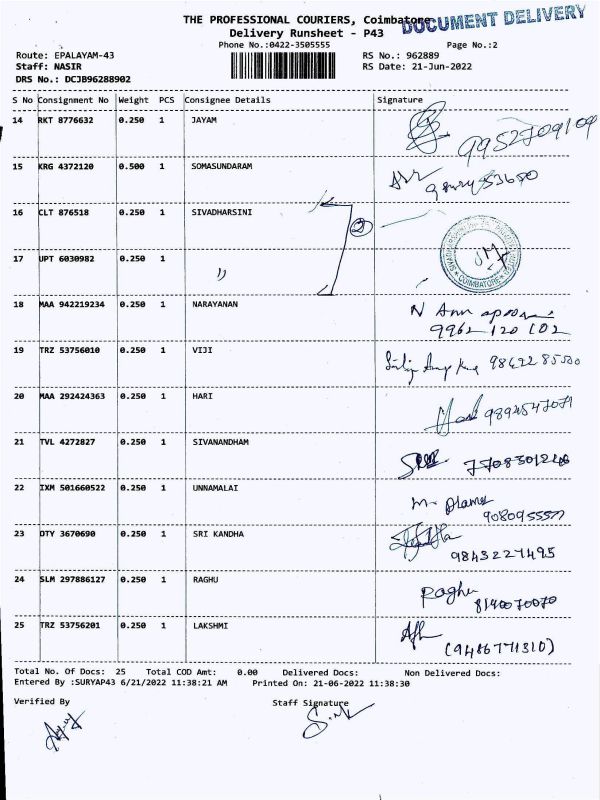 THE PROFESSIONAL COURIERS, Coimbatore
DOCUMENT DELIVERY
Delivery Runsheet - P43
Phone No.:0422-3505555
Page No.:2
Route: EPALAYAM-43
RS No.: 962889
Staff: NASIR
RS Date: 21-Jun-2022
DRS No.: DCJB96288902
S No Consignment No Weight PCS Consignee Details Signature
14 RKT 8776632 0.250 1 JAYAM
9952709109
15 KRG 4372120 0.500 1 SOMASUNDARAM
16 CLT 876518 0.250 1 SIVADHARSINI
2
17 UPT 6030982 0.250 1 〃
COIMBATORE
18 MAA 942219234 0.250 1 NARAYANAN
N
9962 120 102
19 TRZ 53756010 0.250 1 VIJI
98422 85500
20 MAA 292424363 0.250 1 HARI
9894547071
21 TVL 4272827 0.250 1 SIVANANDHAM
7708301246
22 IXM 501660522 0.250 1 UNNAMALAI
9080955577
23 OTY 3670690 0.250 1 SRI KANDHA
9843227495
24 SLM 297886127 0.250 1 RAGHU
Raghu
8140070070
25 TRZ 53756201 0.250 1 LAKSHMI
(9486771310)
Total No. Of Docs: 25 Total COD Amt: 0.00 Delivered Docs: Non Delivered Docs:
Entered By :SURYAP43 6/21/2022 11:38:21 AM Printed On: 21-06-2022 11:38:30
Verified By
Staff Signature